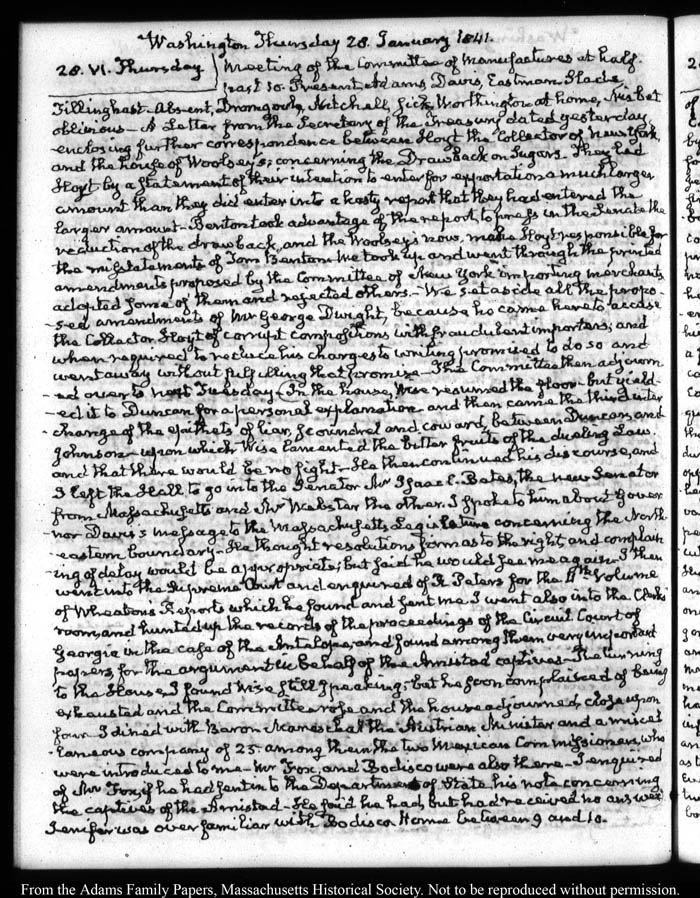 Washington Thursday 28. January 1841.
28. VI. Thursday
Meeting of the Committee of Manufactures at half
past 10. Present Adams, Davis, Eastman, Slade,
Tillinghast. Absent, Dromgoole, Mitchell, sick, Worthington at home,
oblivious – A Letter from the Secretary of the Treasury dated yesterday,
enclosing further correspondence between Hoyt the Collector of New York,
and the house of Woolsey's; concerning the Drawback on Sugars. They led
Hoyt by a statement of their intention to enter for exportation a much larger
amount than they did enter into a hasty report that they had entered the
larger amount. Benton took advantage of the report, to press in the Senate the
reduction of the drawback, and the Woolsey's now, make Hoyt responsible for
the misstatements of Tom Benton. We took up and went through the printed
amendments proposed by the Committee of New York importing merchants
adopted some of them and rejected others. – We set aside all the propo-
-sed amendments of Mr George Dwight, because he came here to accuse
the Collector Hoyt of corrupt compositions with fraudulent importers; and
when required to reduce his charges to writing promised to do so and
went away without fulfilling that promise – The Committee then adjourn
-ed over to next Tuesday – In the house, Wise resumed the floor – but yield-
-ed it to Duncan for a personal explanation – and then came the third inter
-change of the epithets of liar, scoundrel and coward, between Duncan, and
Johnson – upon which Wise lamented the bitter fruits of the dueling Law.
and that there would be no fight – He then continued his discourse, and
I left the Hall to go into the Senator Mr Isaac C. Bates, the new Senator
from Massachusetts and Mr Webster the other. I spoke to him about Gover
nor Davis's message to the Massachusetts Legislature concerning the North-
eastern boundary – He thought resolutions firm as to the right and complain
ing of delay would be appropriate; but said he would see me again. I then
went into the Supreme Court and enquired of R Peters for the 11th Volume
of Wheaton's Reports which he found and sent me. I went also into the Clerks
room, and hunted up the records of the proceedings of the Circuit Court of
Georgia in the case of the Antelope, and found among them very important
papers for the argument in behalf of the Amistad captives – Returning
to the House, I found Wise still speaking; but he soon complained of being
exhausted and the Committee rose and the house adjourned, close upon
four. I dined with Baron Mareschal the Austrian Minister and a miscel
laneous company of 25. among them the two Mexican Commissioners, who
were introduced to me – Mr Fox, and Bodisco were also there – I enquired
of Mr Fox, if he had sent in to the Department of State his note concerning
the captives of the Amistad – He said he had, but had received no answer
Jenifer was over familiar with Bodisco. Home between 9 and 10.
From the Adams Family Papers, Massachusetts Historical Society. Not to be reproduced without permission.